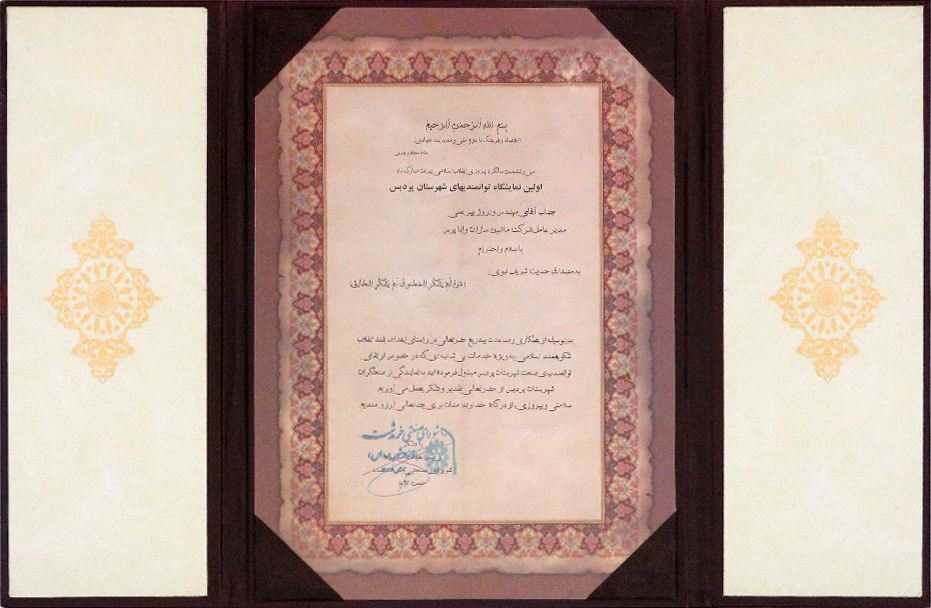 بسم الله الرحمن الرحیم
اقتصاد و فرهنگ با عزم ملی و مدیریت جهادی
مقام معظم رهبری
سی و ششمین سالگرد پیروزی انقلاب اسلامی ایران مبارک باد
اولین نمایشگاه توانمندیهای شهرستان پردیس
جناب آقای مهندس
مدیر عامل شرکت ماشین سازان پرس
با سلام و احترام
به مصداق حدیث شریف نبوی
من لم یشکر المخلوق لم یشکر الخالق
بدینوسیله از همکاری و مساعدت بیدریغ حضرتعالی در راستای اهداف بلند انقلاب
شکوهمند اسلامی به ویژه خدمات بی شائبه ای که در خصوص ارتقای
توانمندیهای صنعت شهرستان پردیس مبذول فرموده اید به نمایندگی از صنعتگران
شهرستان پردیس از حضرتعالی تقدیر و تشکر بعمل می آوریم
سلامتی و پیروزی از درگاه خداوند منان برای جنابعالی آرزومندیم
شورای صنعتی خرمدشت